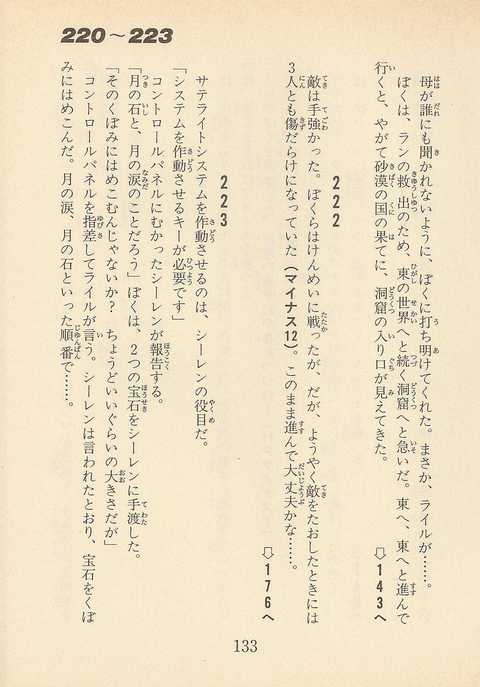 220～223
母が誰にも聞かれないように、ぼくに打ち明けてくれた。まさか、ライルが……。
ぼくは、ランの救出のため、東の世界へと続く洞窟へと急いだ。東へ、東へと進んで
行くと、やがて砂漠の国の果てに、洞窟の入り口が見えてきた。
⇨143へ
222
敵は手強かった。ぼくらはけんめいに戦ったが、だが、ようやく敵をたおしたときには
3人とも傷だらけになっていた（マイナス12）。このまま進んで大丈夫かな……。
⇨176へ
223
サテライトシステムを作動させるのは、シーレンの役目だ。
「システムを作動させるキーが必要です」
コントロールパネルにむかったシーレンが報告する。
「月の石と、月の涙のことだろう」ぼくは、2つの宝石をシーレンに手渡した。
「そのくぼみにはめこむんじゃないか？　ちょうどいいぐらいの大きさだが」
コントロールパネルを指差してライルが言う。シーレンは言われたとおり、宝石をくぼ
みにはめこんだ。月の涙、月の石といった順番で……。
133